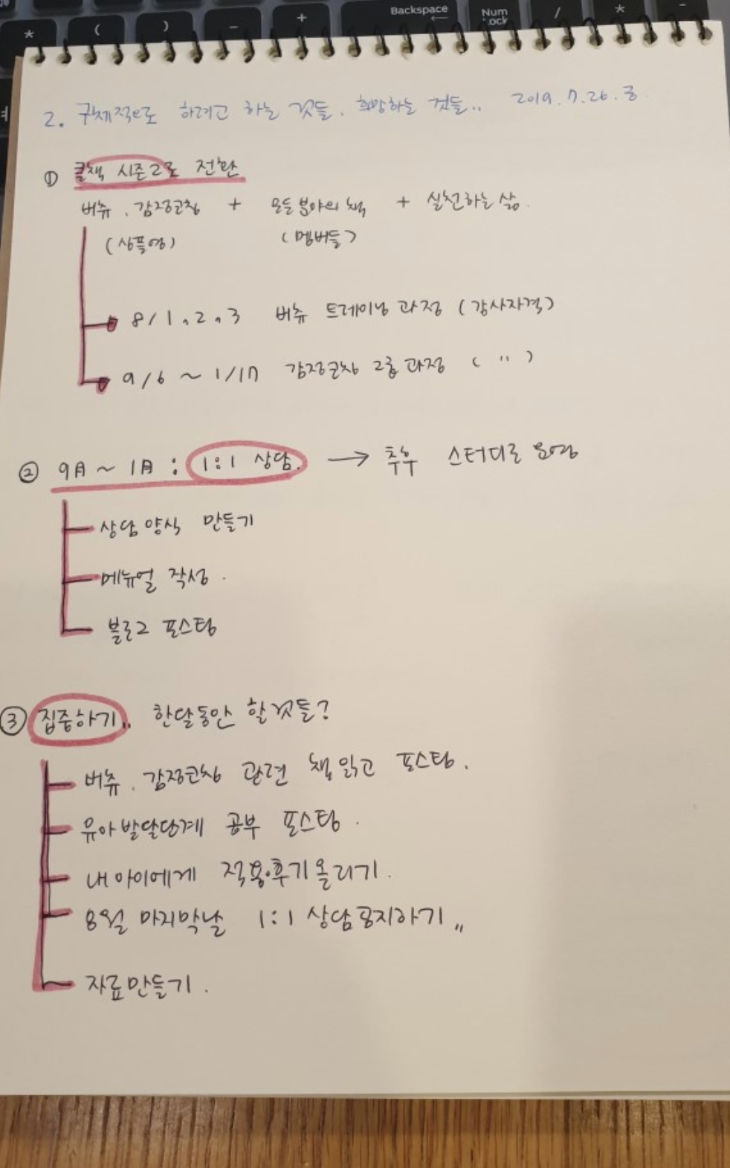 Backspace
Num
Lock
* ( ) - + / * -
2. 구체적으로 하려고 하는 것들. 희망하는 것들.. 2019.7.26.금
① 콜책 시즌2로 전환
버츄. 감정코칭 + 모든 분야의 책 + 실천하는 삶.
(상품명) (멤버들)
8/1.2.3 버츄 트레이닝 과정 (강사자격)
9/6 ~ 1/17 감정코칭 2급 과정 ( " )
② 9月 ~ 1月 : 1:1 상담. → 추후 스터디로 운영
상담 양식 만들기
메뉴얼 작성.
블로그 포스팅
③ 집중하기.. 한달동안 할것들?
버츄. 감정코칭 관련 책읽고 포스팅.
유아발달단계 공부 포스팅.
내아이에게 적용·후기올리기.
8월 마지막날 1:1 상담공지하기 〃
자료만들기.